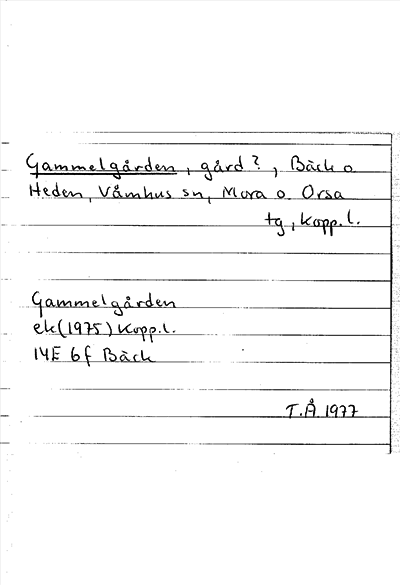 Gammelgården, gård?, Bäck o.
Heden, Våmhus sn, Mora o. Orsa
tg, Kopp.l.
Gammelgården
ek(1975) Kopp.l.
14E 6f Bäck
T.Å. 1977